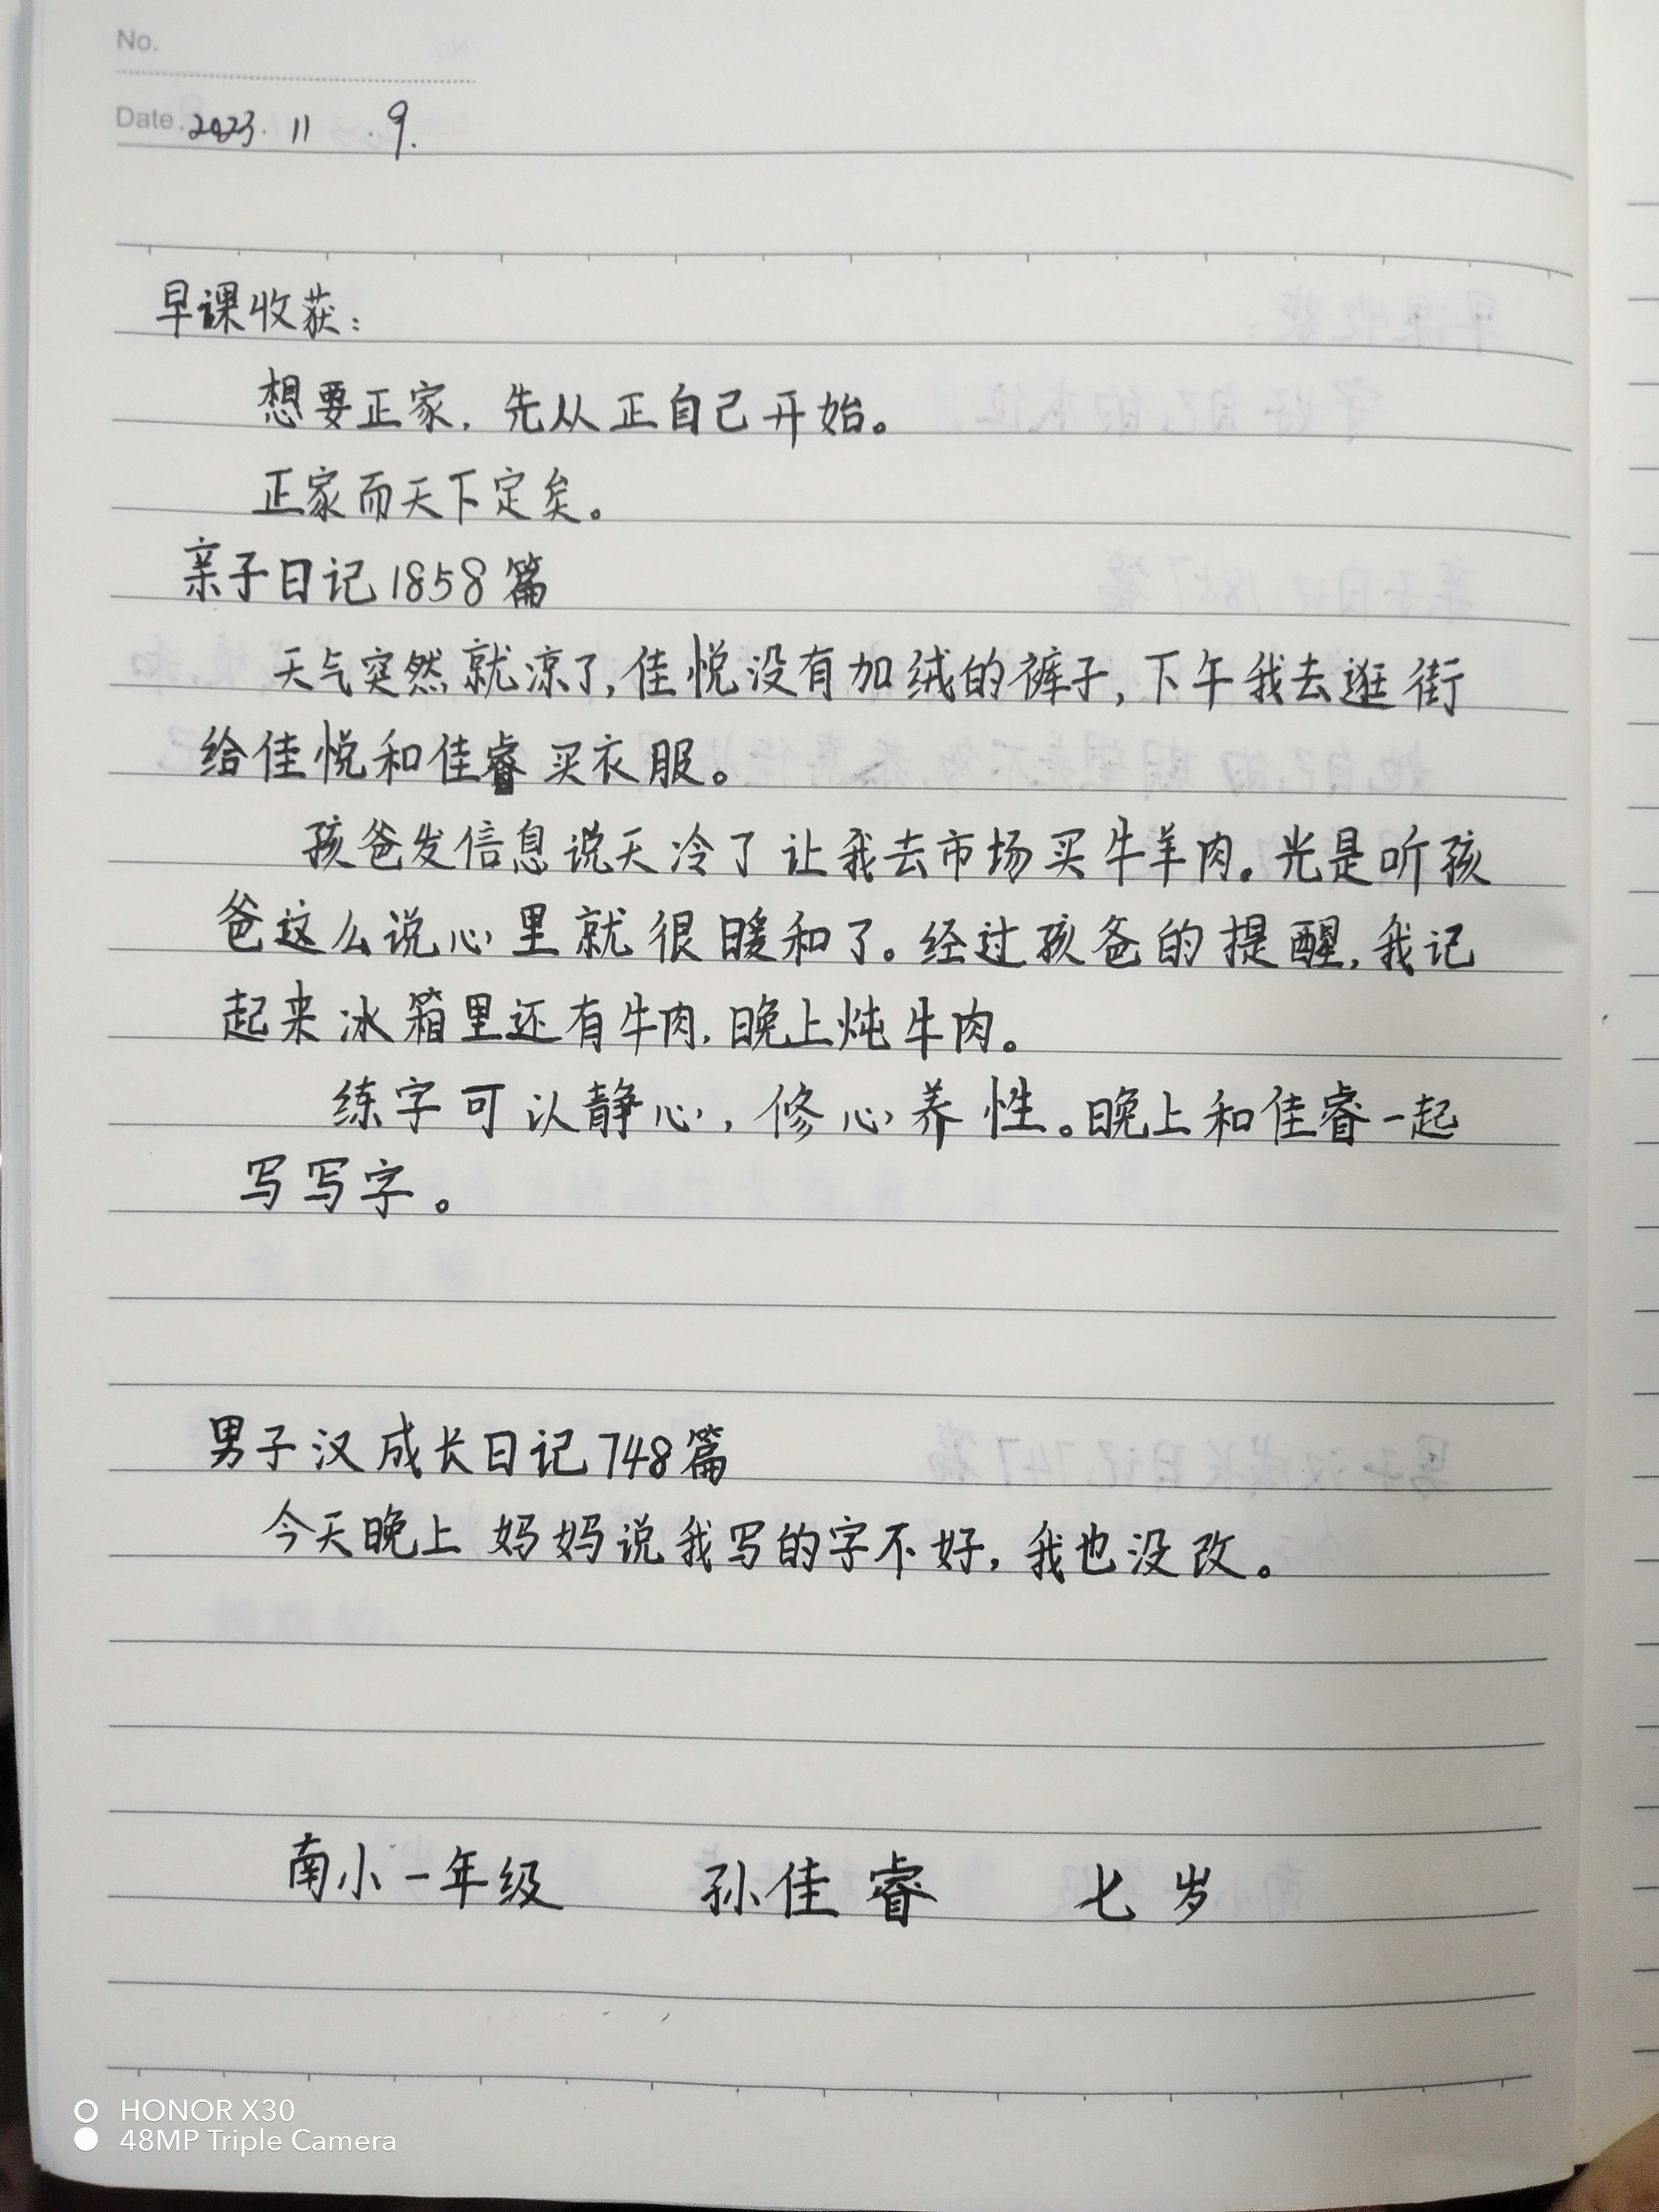 No.
Date. 2023. 11 .9.
早课收获：
想要正家，先从正自己开始。
正家而天下定矣。
亲子日记1858篇
天气突然就凉了，佳悦没有加绒的裤子，下午我去逛街
给佳悦和佳睿买衣服。
孩爸发信息说天冷了让我去市场买牛羊肉。光是听孩
爸这么说心里就很暖和了。经过孩爸的提醒，我记
起来冰箱里还有牛肉，晚上炖牛肉。
练字可以静心，修心养性。晚上和佳睿一起
写写字。
男子汉成长日记748篇
今天晚上妈妈说我写的字不好，我也没改。
南小一年级 孙佳睿 七岁
HONOR X30
48MP Triple Camera